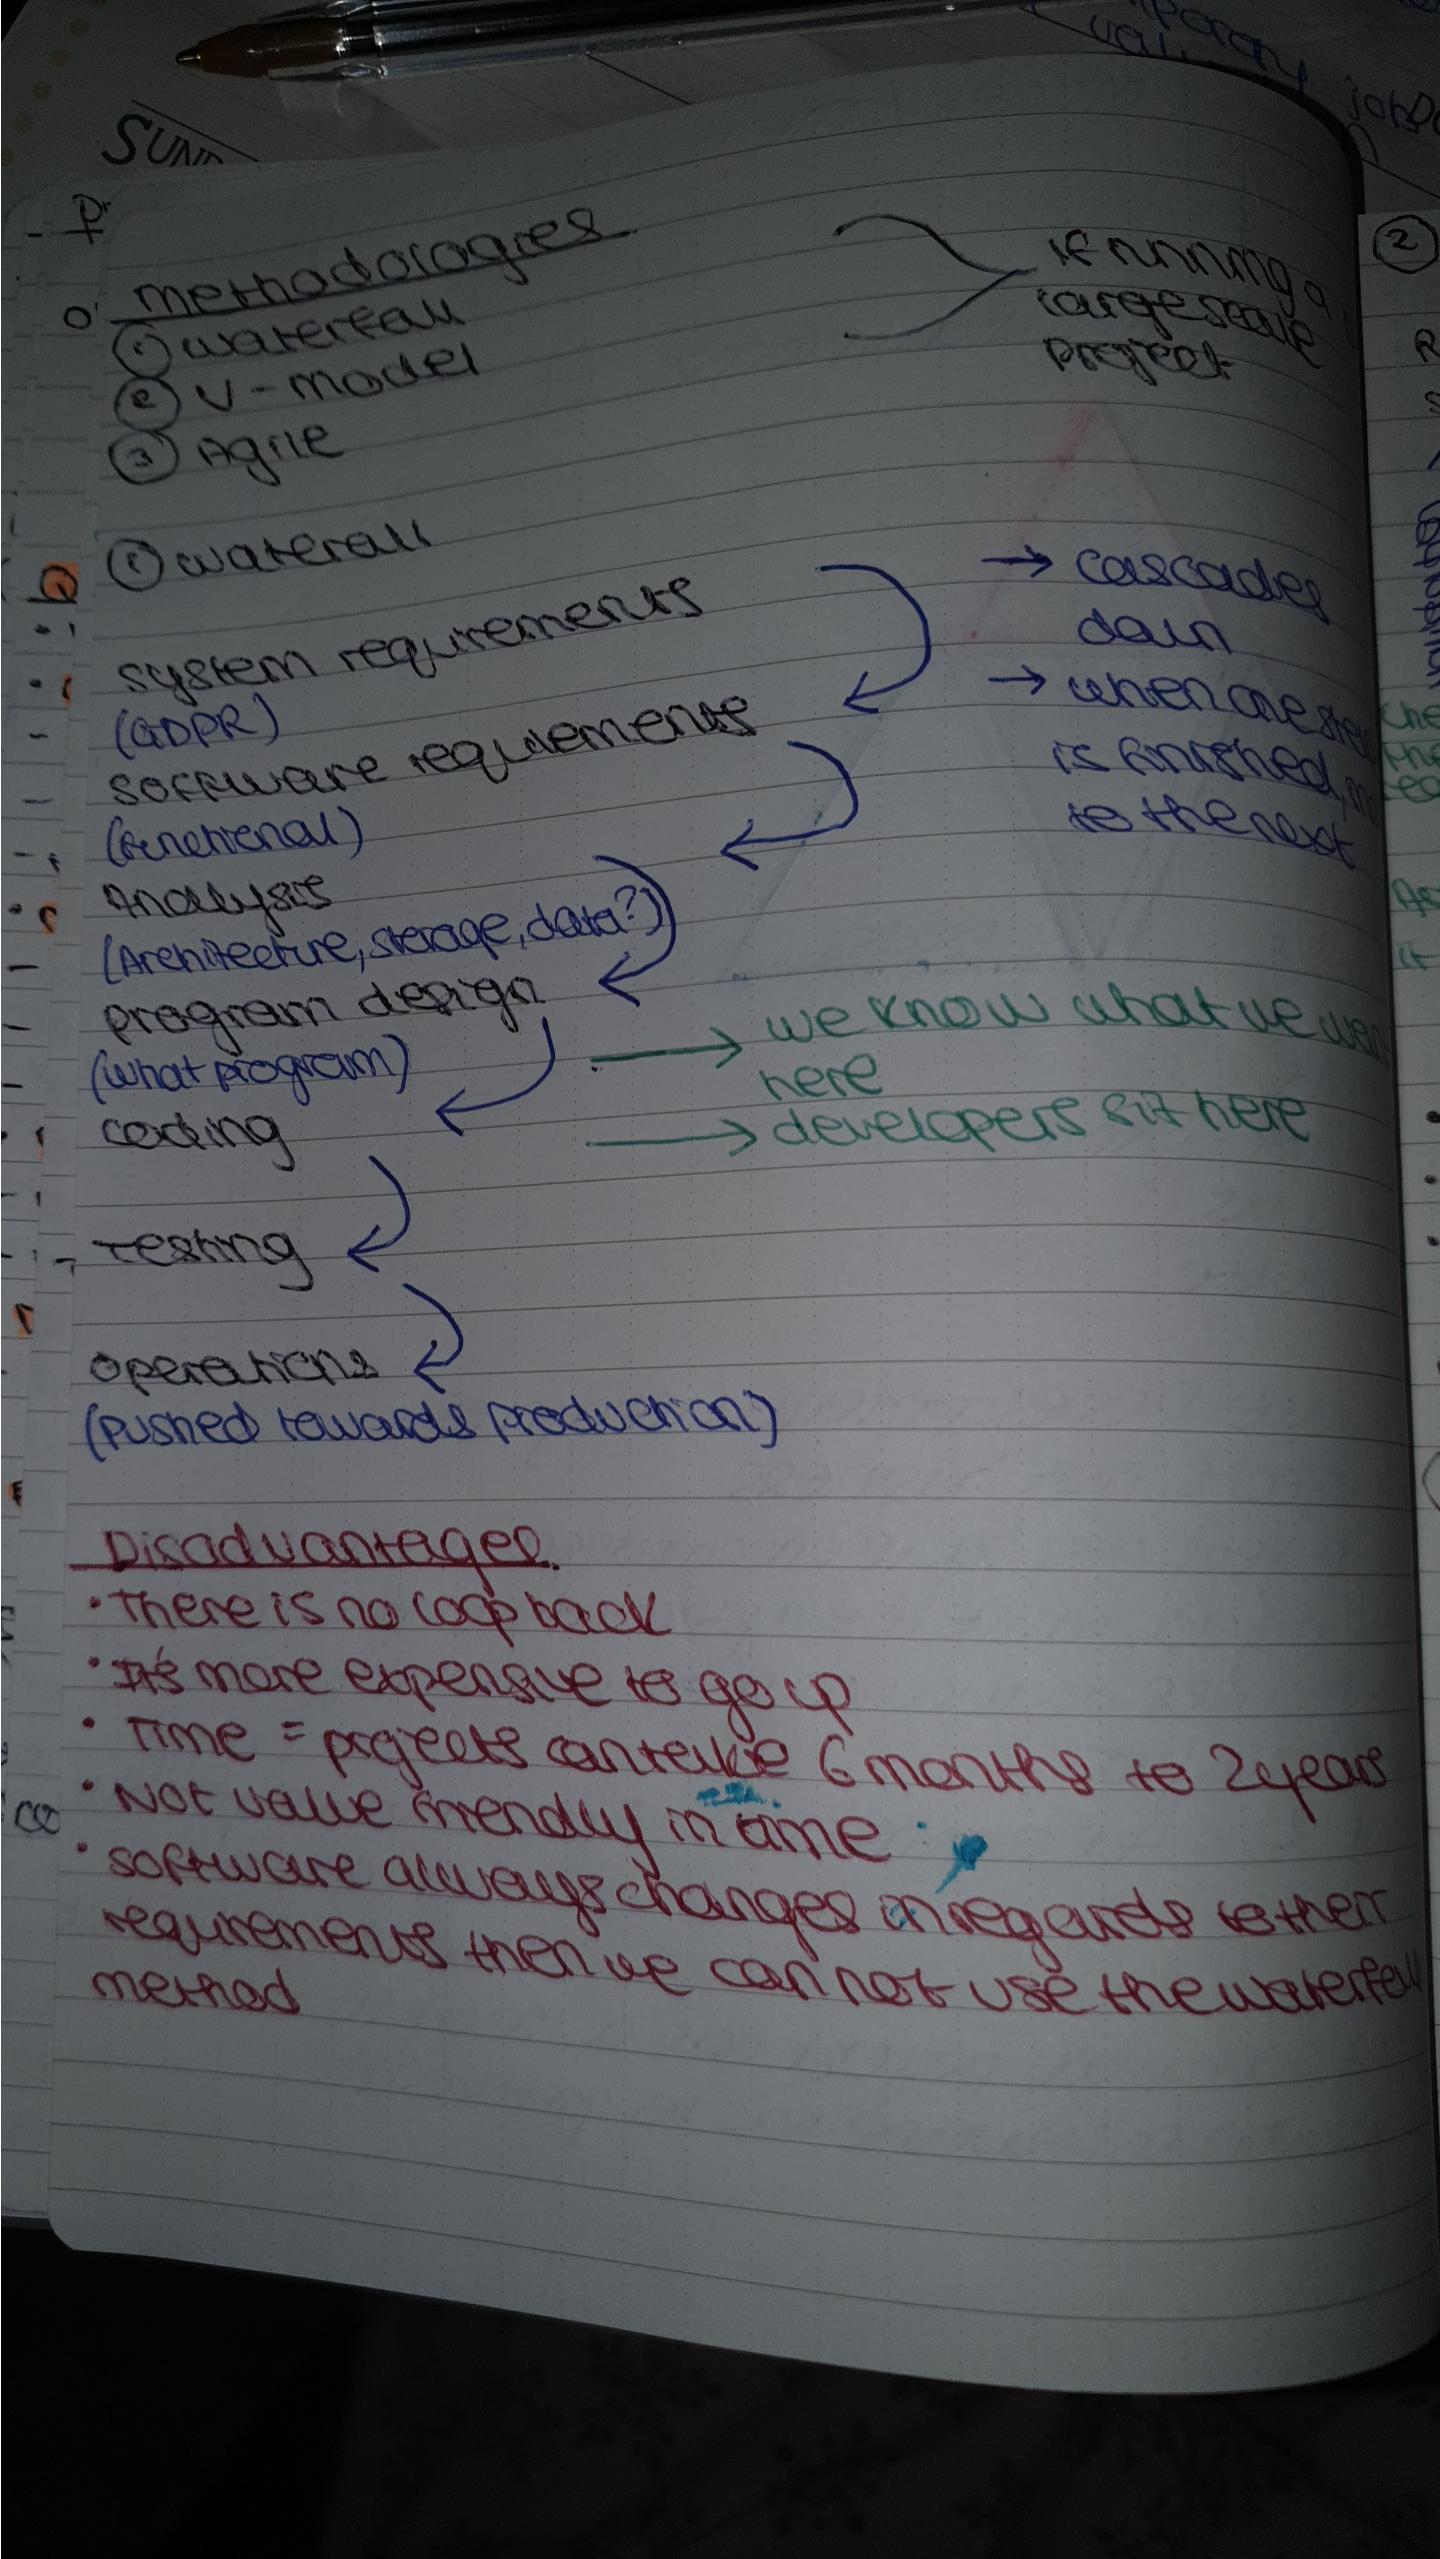 SUND
methodologies
① waterfall
② V-model
③ Agile
if running a
largescale
project
① waterfall
system requirements
(GDPR)
software requirements
(functional)
Analysis
(Architecture, storage, data?)
program design
(what program)
coding
testing
operations
(pushed towards production)
→ cascades
down
→ when one step
is finished,
to the next
→ we know what we
here
→ developers sit here
Disadvantages
• There is no loop back
• It's more expensive to go up
• Time = projects can take 6 months to 2 years
• Not value friendly in time
• software always changes in regards to their
requirements then we can not use the waterfall
method
②